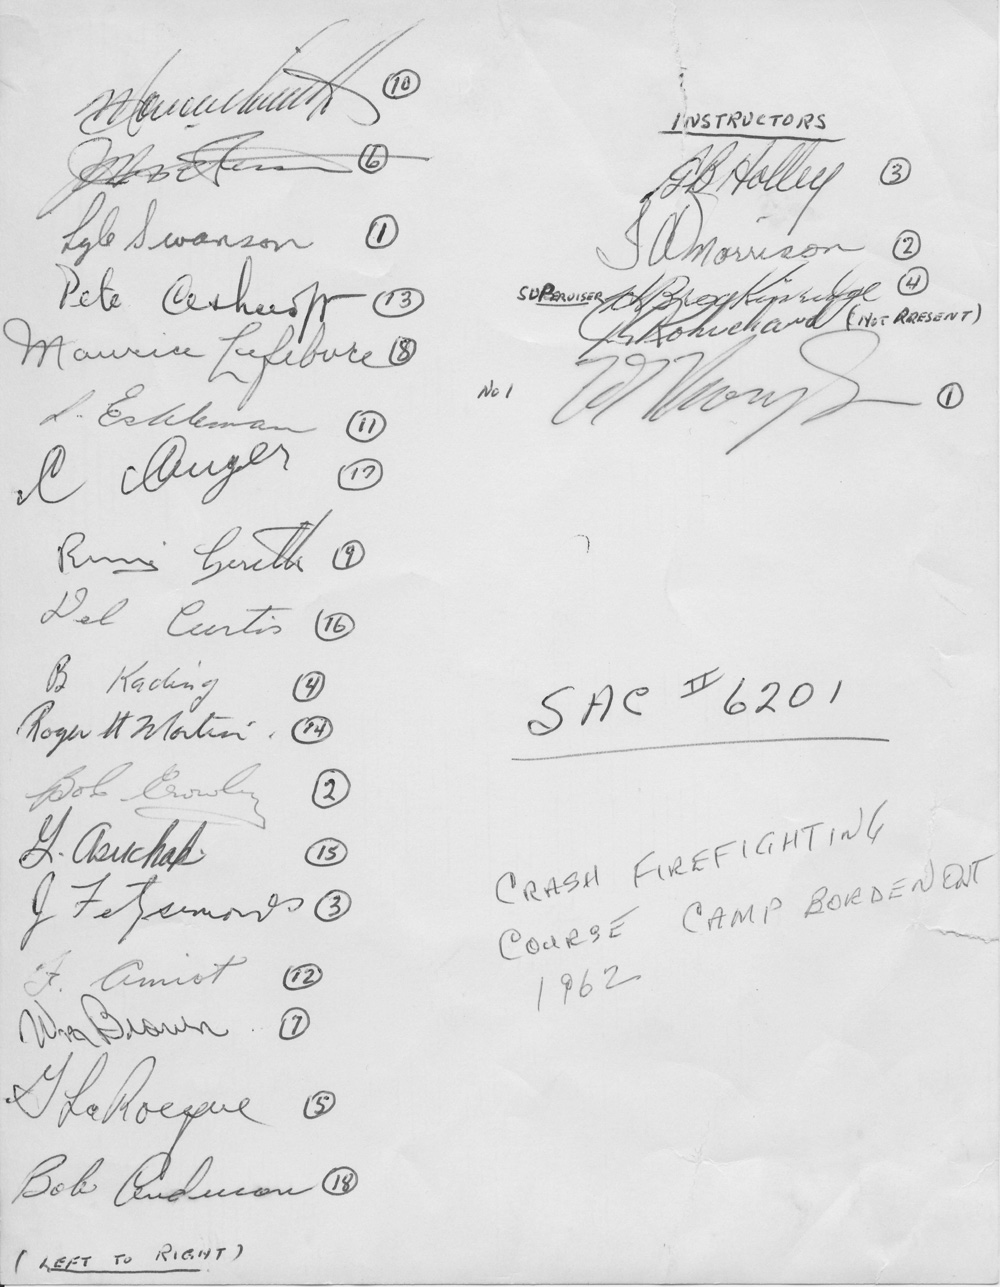 10
6
Lyle Swanson 1
Pete 13
Maurice Lefebvre 8
L. Eshleman 11
C Auger 17
9
Del Curtis 16
B Kading 4
Roger H Martin. 14
Bob Crowley 2
15
J Fitzsimonds 3
F. Amiot 12
Wm Brown 7
G LaRocque 5
Bob Anderson 18
(LEFT TO RIGHT)
INSTRUCTORS
GB Holley 3
Morrison 2
SUPERVISER Breckinridge 4
Robichaud (NOT PRESENT)
No 1 1
SAC # 6201
CRASH FIREFIGHTING
COURSE CAMP BORDEN ONT
1962